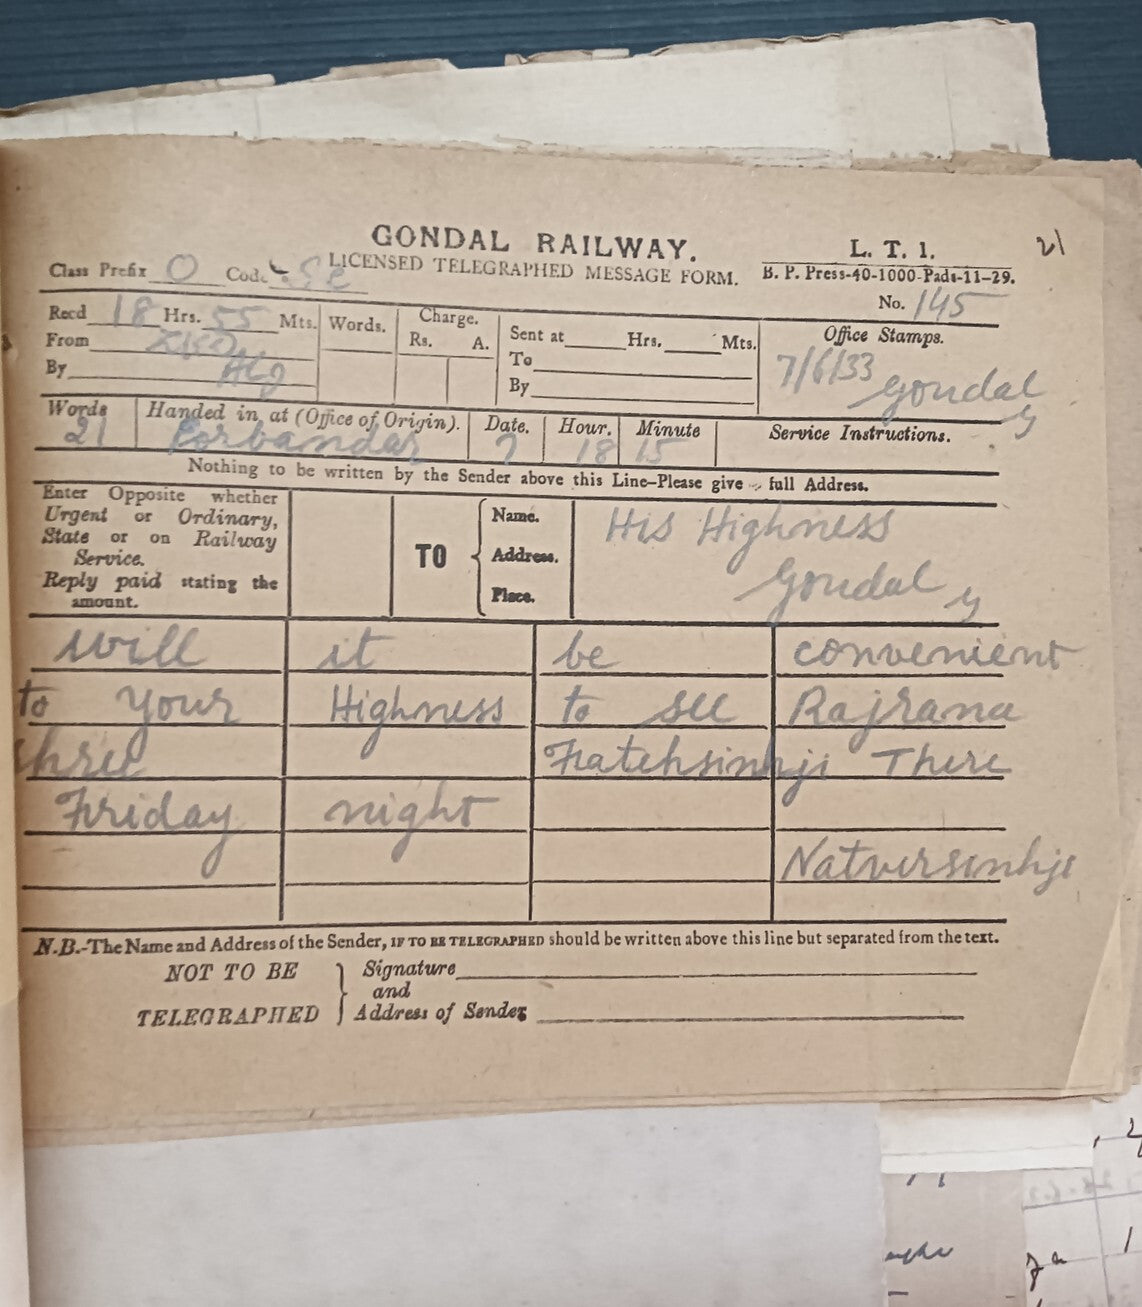 GONDAL RAILWAY.
LICENSED TELEGRAPHED MESSAGE FORM.
L. T. 1.
B. P. Press-40-1000-Pads-11-29.
21
Class Prefix O Code
No. 145
Recd 18 Hrs. 55 Mts.
From
By
Words.
Charge.
Rs. A.
Sent at Hrs. Mts.
To
By
Office Stamps.
7/6/33 Gondal
Words
21
Handed in at (Office of Origin).
Porbandar
Date.
7
Hour.
18
Minute
15
Service Instructions.
Nothing to be written by the Sender above this Line-Please give full Address.
Enter Opposite whether
Urgent or Ordinary,
State or on Railway
Service.
Reply paid stating the
amount.
TO
Name.
Address.
Place.
His Highness
Gondal
will it be convenient
to your Highness to see Rajrana
shree Fatehsinhji There
Friday night
Natversinhji
N.B.-The Name and Address of the Sender, IF TO BE TELEGRAPHED should be written above this line but separated from the text.
NOT TO BE
TELEGRAPHED
Signature
and
Address of Sender